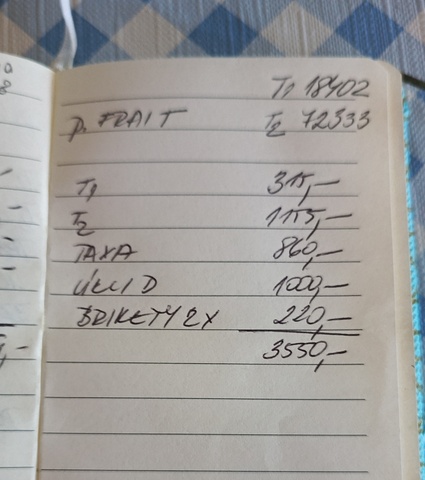 T1 18402
p. FRAIT T2 72533
T1 315,–
T2 1155,–
TAXA 860,–
ÚKLID 1000,–
BRIKETY 2X 220,–
3550,–